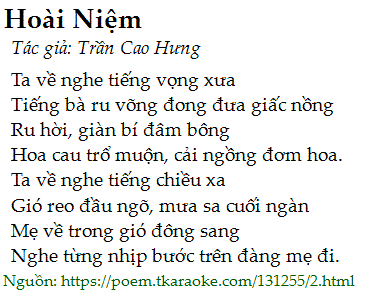 Hoài Niệm
Tác giả: Trần Cao Hưng
Ta về nghe tiếng vọng xưa
Tiếng bà ru võng đong đưa giấc nồng
Ru hời, giàn bí đâm bông
Hoa cau trổ muộn, cải ngồng đơm hoa.
Ta về nghe tiếng chiều xa
Gió reo đầu ngõ, mưa sa cuối ngàn
Mẹ về trong gió đông sang
Nghe từng nhịp bước trên đàng mẹ đi.
Nguồn: https://poem.tkaraoke.com/131255/2.html